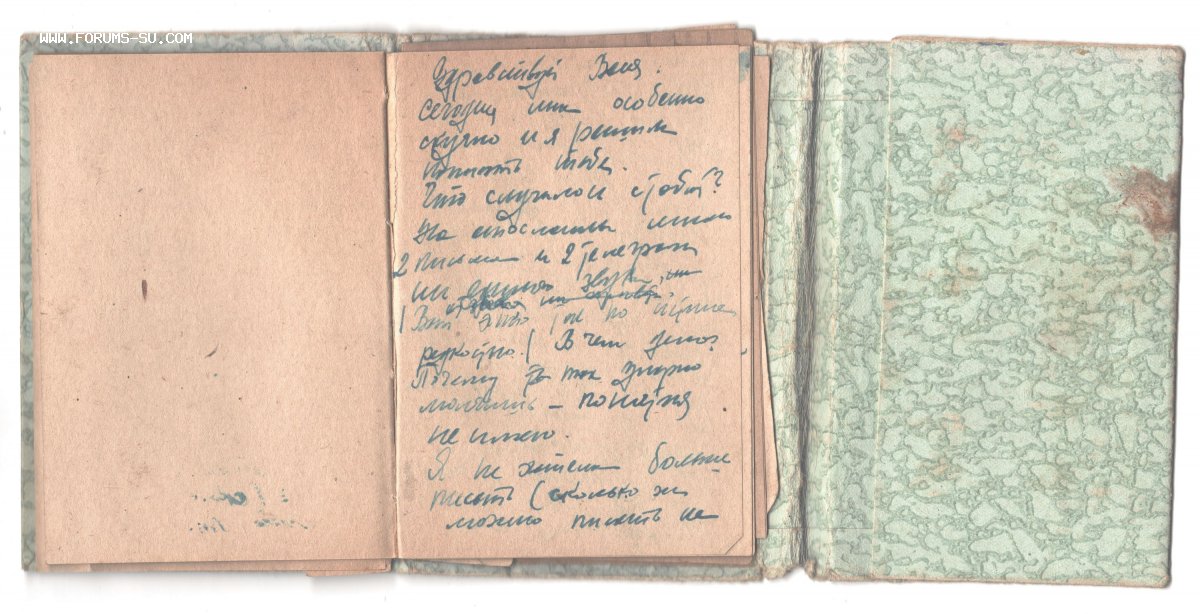 WWW.FORUMS-SU.COM
Здравствуй Веня.
сегодня мне особенно
скучно и я решила
написать тебе.
Что случилось с тобой?
На
2 письма и 2 телеграммы
ни единого звука, ни
редкостно.) В чем дело?
Почему ты так упорно
молчишь – понятия
не имею.
Я не хотела больше
писать (сколько же
можно писать не